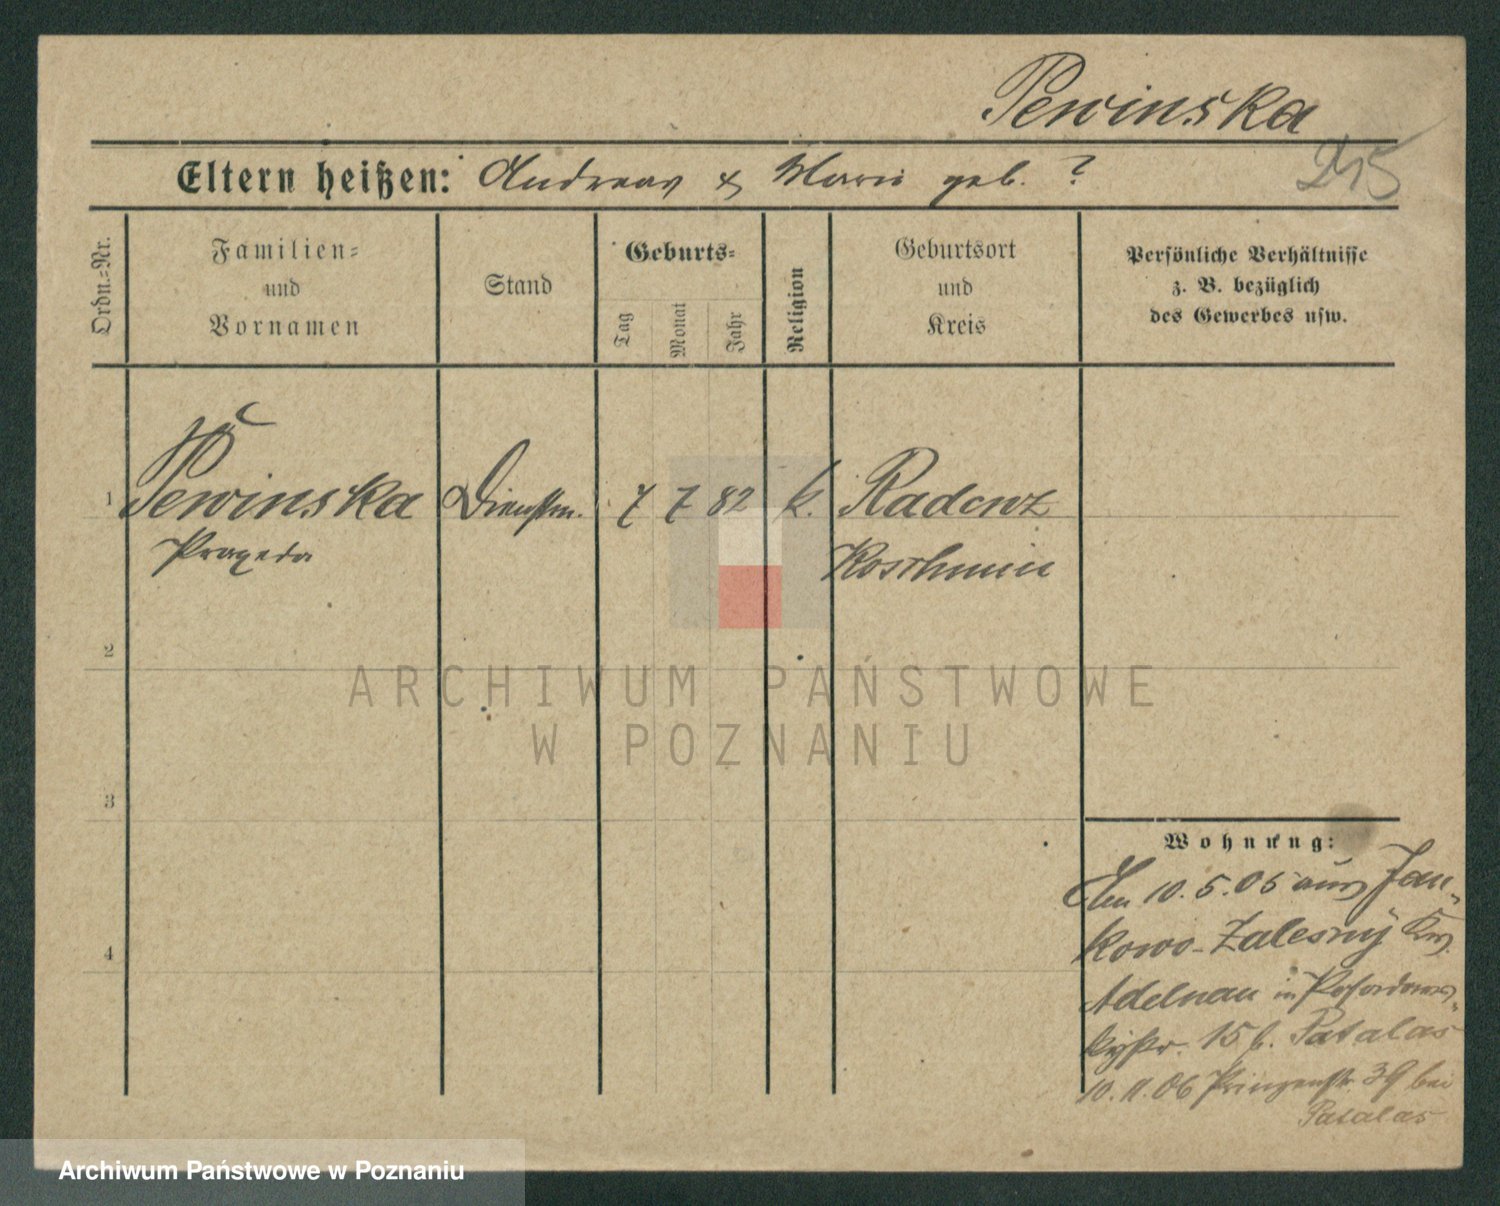 Pewinska
Eltern heißen: Andreas & Marie geb. ?
215
Ordn.=Nr.
Familien=
und
Vornamen
Stand
Geburts=
Tag
Monat
Jahr
Religion
Geburtsort
und
Kreis
Persönliche Verhältnisse
z. B. bezüglich
des Gewerbes usw.
1 Pewinska Dienstm. 7 7 82 k. Radenz
Praxeda Koschmin
2
ARCHIWUM PAŃSTWOWE
W POZNANIU
3
Wohnung:
Am 10.5.05 aus Jan-
4
kowo-Zalesny Krs.
Adelnau in
15 b. Patalas
10.11.06 Prinzenstr. 39 bei
Patalas
Archiwum Państwowe w Poznaniu